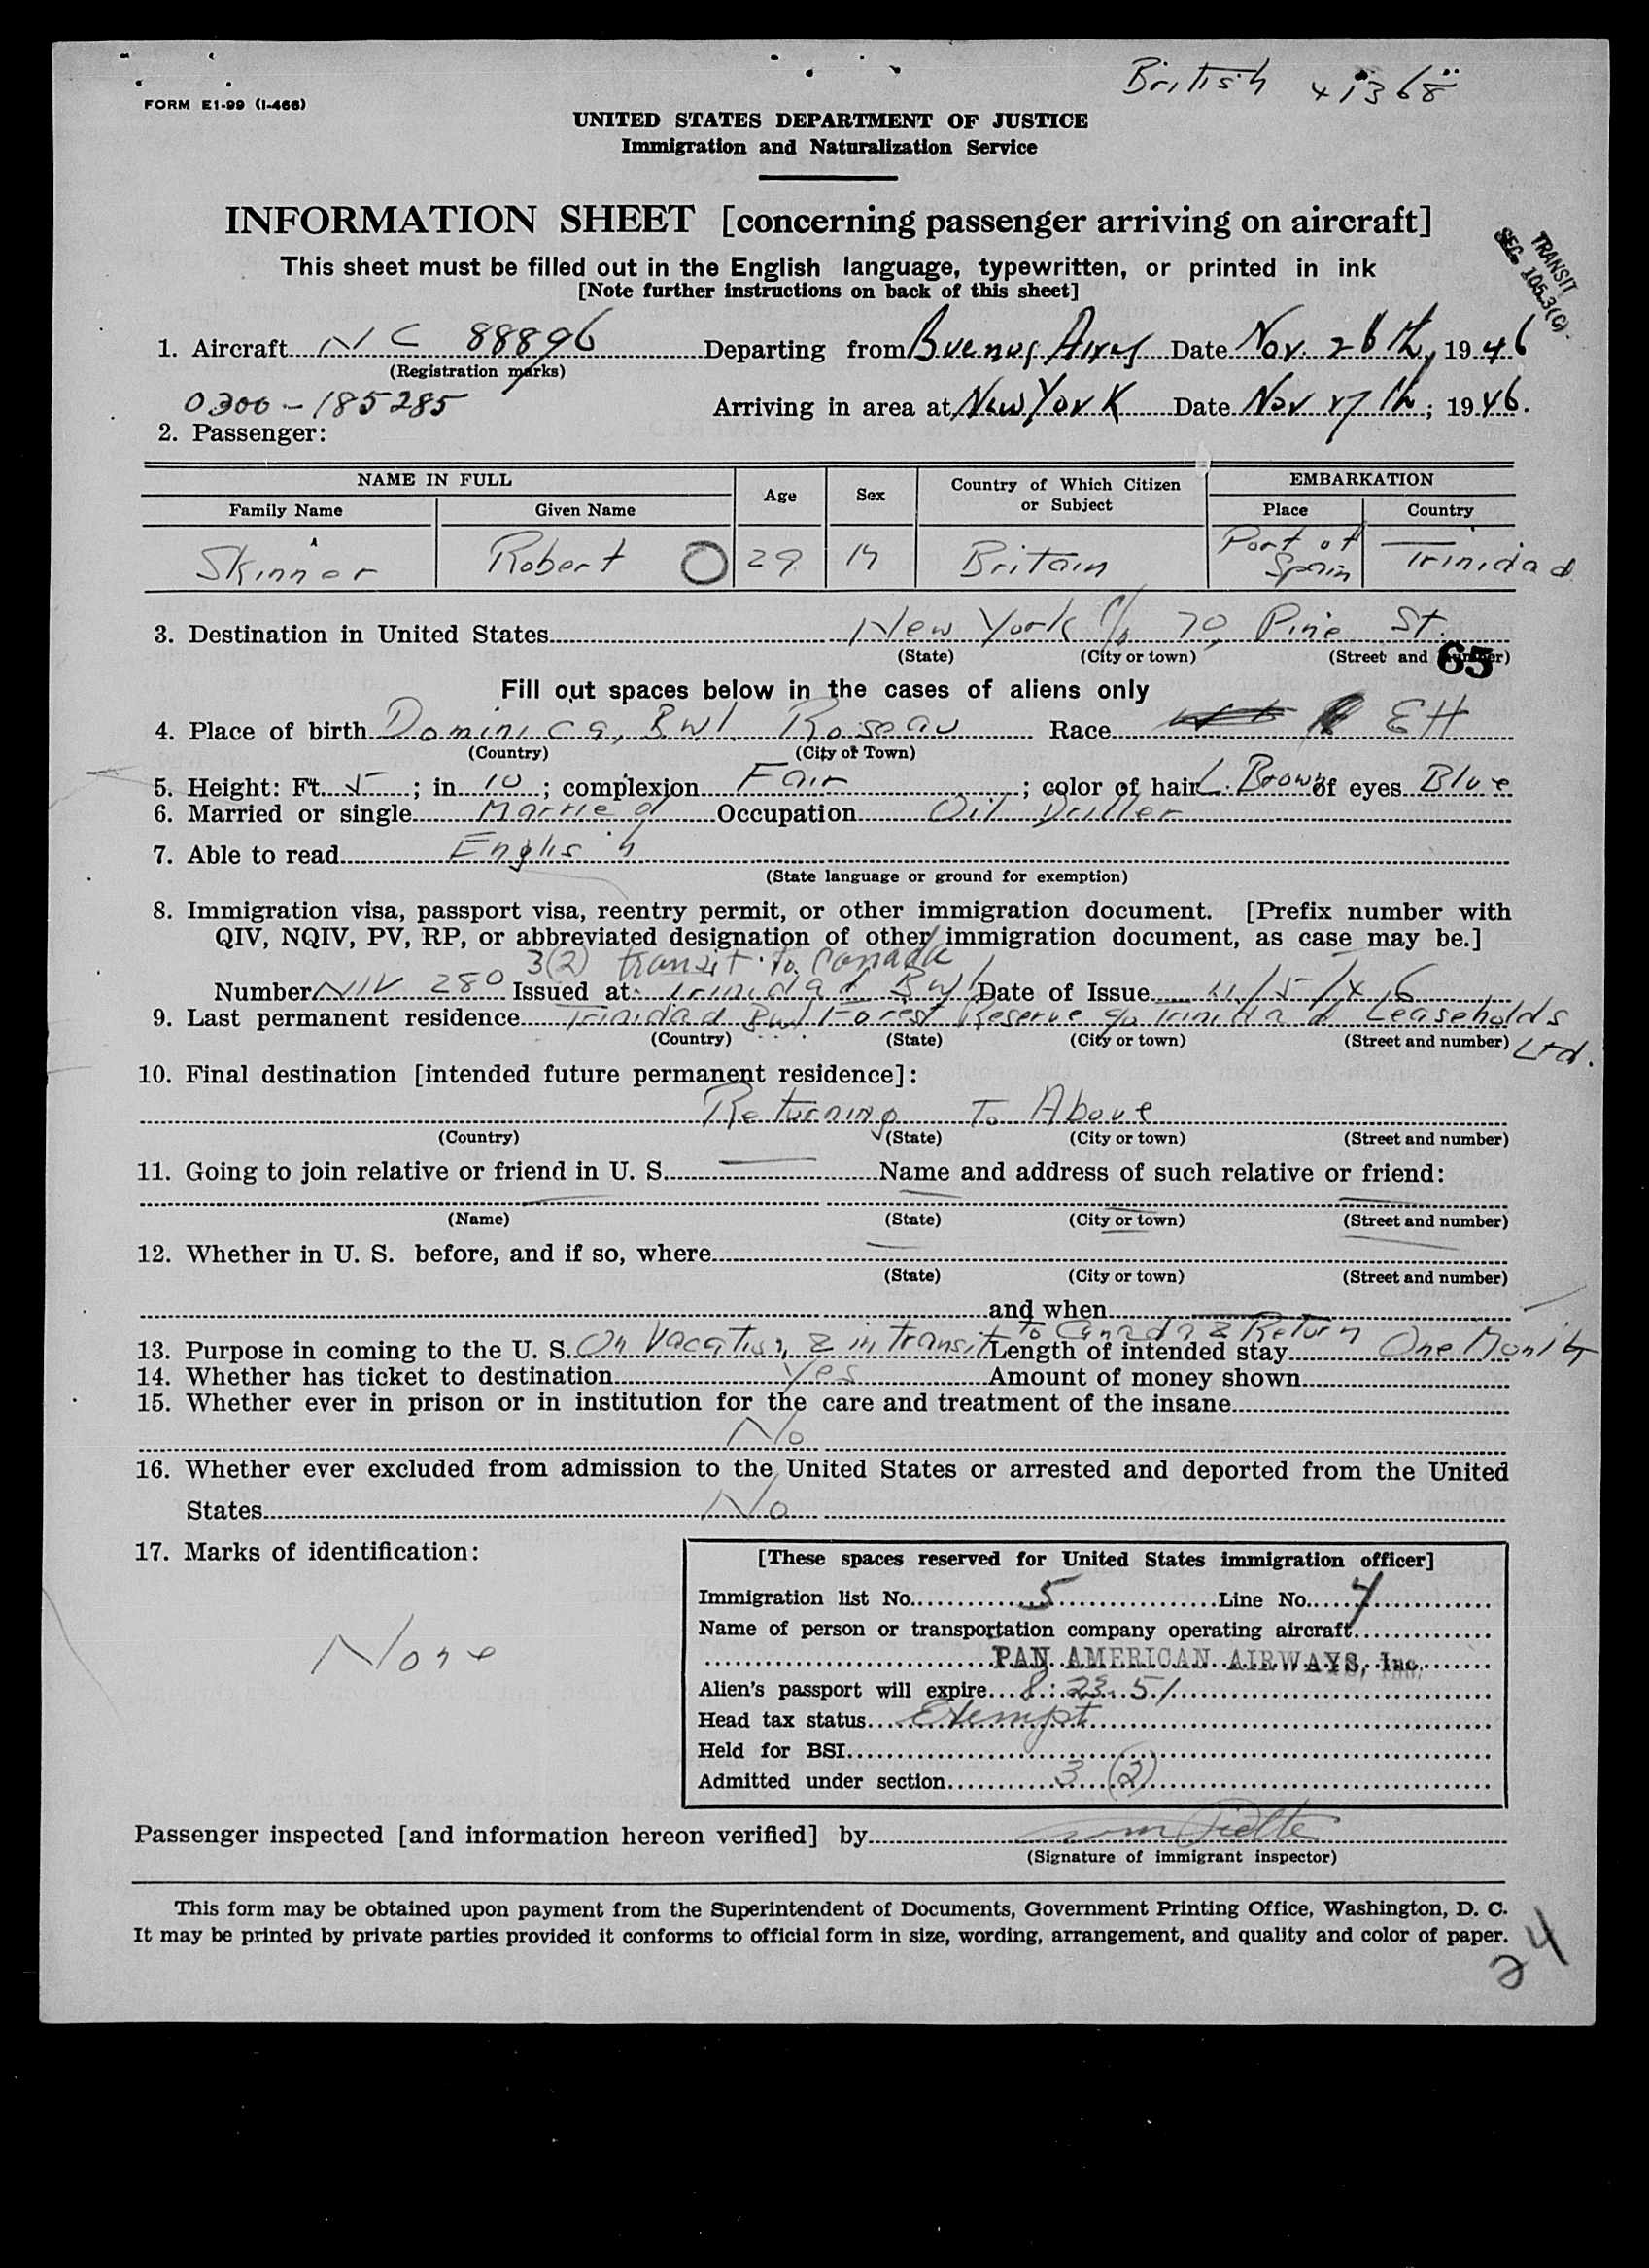 British 41368
FORM E1-99 (I-466)
UNITED STATES DEPARTMENT OF JUSTICE
Immigration and Naturalization Service
INFORMATION SHEET [concerning passenger arriving on aircraft]
TRANSIT
SEC. 105.3(C).
This sheet must be filled out in the English language, typewritten, or printed in ink
[Note further instructions on back of this sheet]
1. Aircraft NC 88896 Departing from Buenos Aires Date Nov. 26th, 1946
(Registration marks)
0300-185285 Arriving in area at New York Date Nov 27th; 1946.
2. Passenger:
NAME IN FULL Age Sex Country of Which Citizen or Subject EMBARKATION
Family Name Given Name Place Country
Skinner Robert O 29 M Britain Port of Spain Trinidad
3. Destination in United States New York c/o 70, Pine St.
(State) (City or town) (Street and number)
65
Fill out spaces below in the cases of aliens only
4. Place of birth Dominica, BWI. Roseau Race EH
(Country) (City or Town)
5. Height: Ft. 5; in 10; complexion Fair; color of hair L. Brown of eyes Blue
6. Married or single Married Occupation Oil Driller
7. Able to read English
(State language or ground for exemption)
8. Immigration visa, passport visa, reentry permit, or other immigration document. [Prefix number with
QIV, NQIV, PV, RP, or abbreviated designation of other immigration document, as case may be.]
3(2) transit to Canada
Number NIV 280 Issued at Trinidad BWI Date of Issue 11/5/46
9. Last permanent residence Trinidad BWI Forest Reserve c/o Trinidad Leaseholds
(Country) (State) (City or town) (Street and number) Ltd.
10. Final destination [intended future permanent residence]:
Returning To Above
(Country) (State) (City or town) (Street and number)
11. Going to join relative or friend in U. S. Name and address of such relative or friend:
(Name) (State) (City or town) (Street and number)
12. Whether in U. S. before, and if so, where
(State) (City or town) (Street and number)
and when
to Canada & Return
13. Purpose in coming to the U. S. On Vacation & in transit Length of intended stay One Month
14. Whether has ticket to destination Yes Amount of money shown
15. Whether ever in prison or in institution for the care and treatment of the insane
No
16. Whether ever excluded from admission to the United States or arrested and deported from the United
States No
17. Marks of identification:
None
[These spaces reserved for United States immigration officer]
Immigration list No. 5 Line No. 4
Name of person or transportation company operating aircraft
PAN AMERICAN AIRWAYS, Inc.
Alien's passport will expire 8.23.51
Head tax status Exempt
Held for BSI
Admitted under section 3 (2)
Passenger inspected [and information hereon verified] by
(Signature of immigrant inspector)
This form may be obtained upon payment from the Superintendent of Documents, Government Printing Office, Washington, D. C.
It may be printed by private parties provided it conforms to official form in size, wording, arrangement, and quality and color of paper.
24